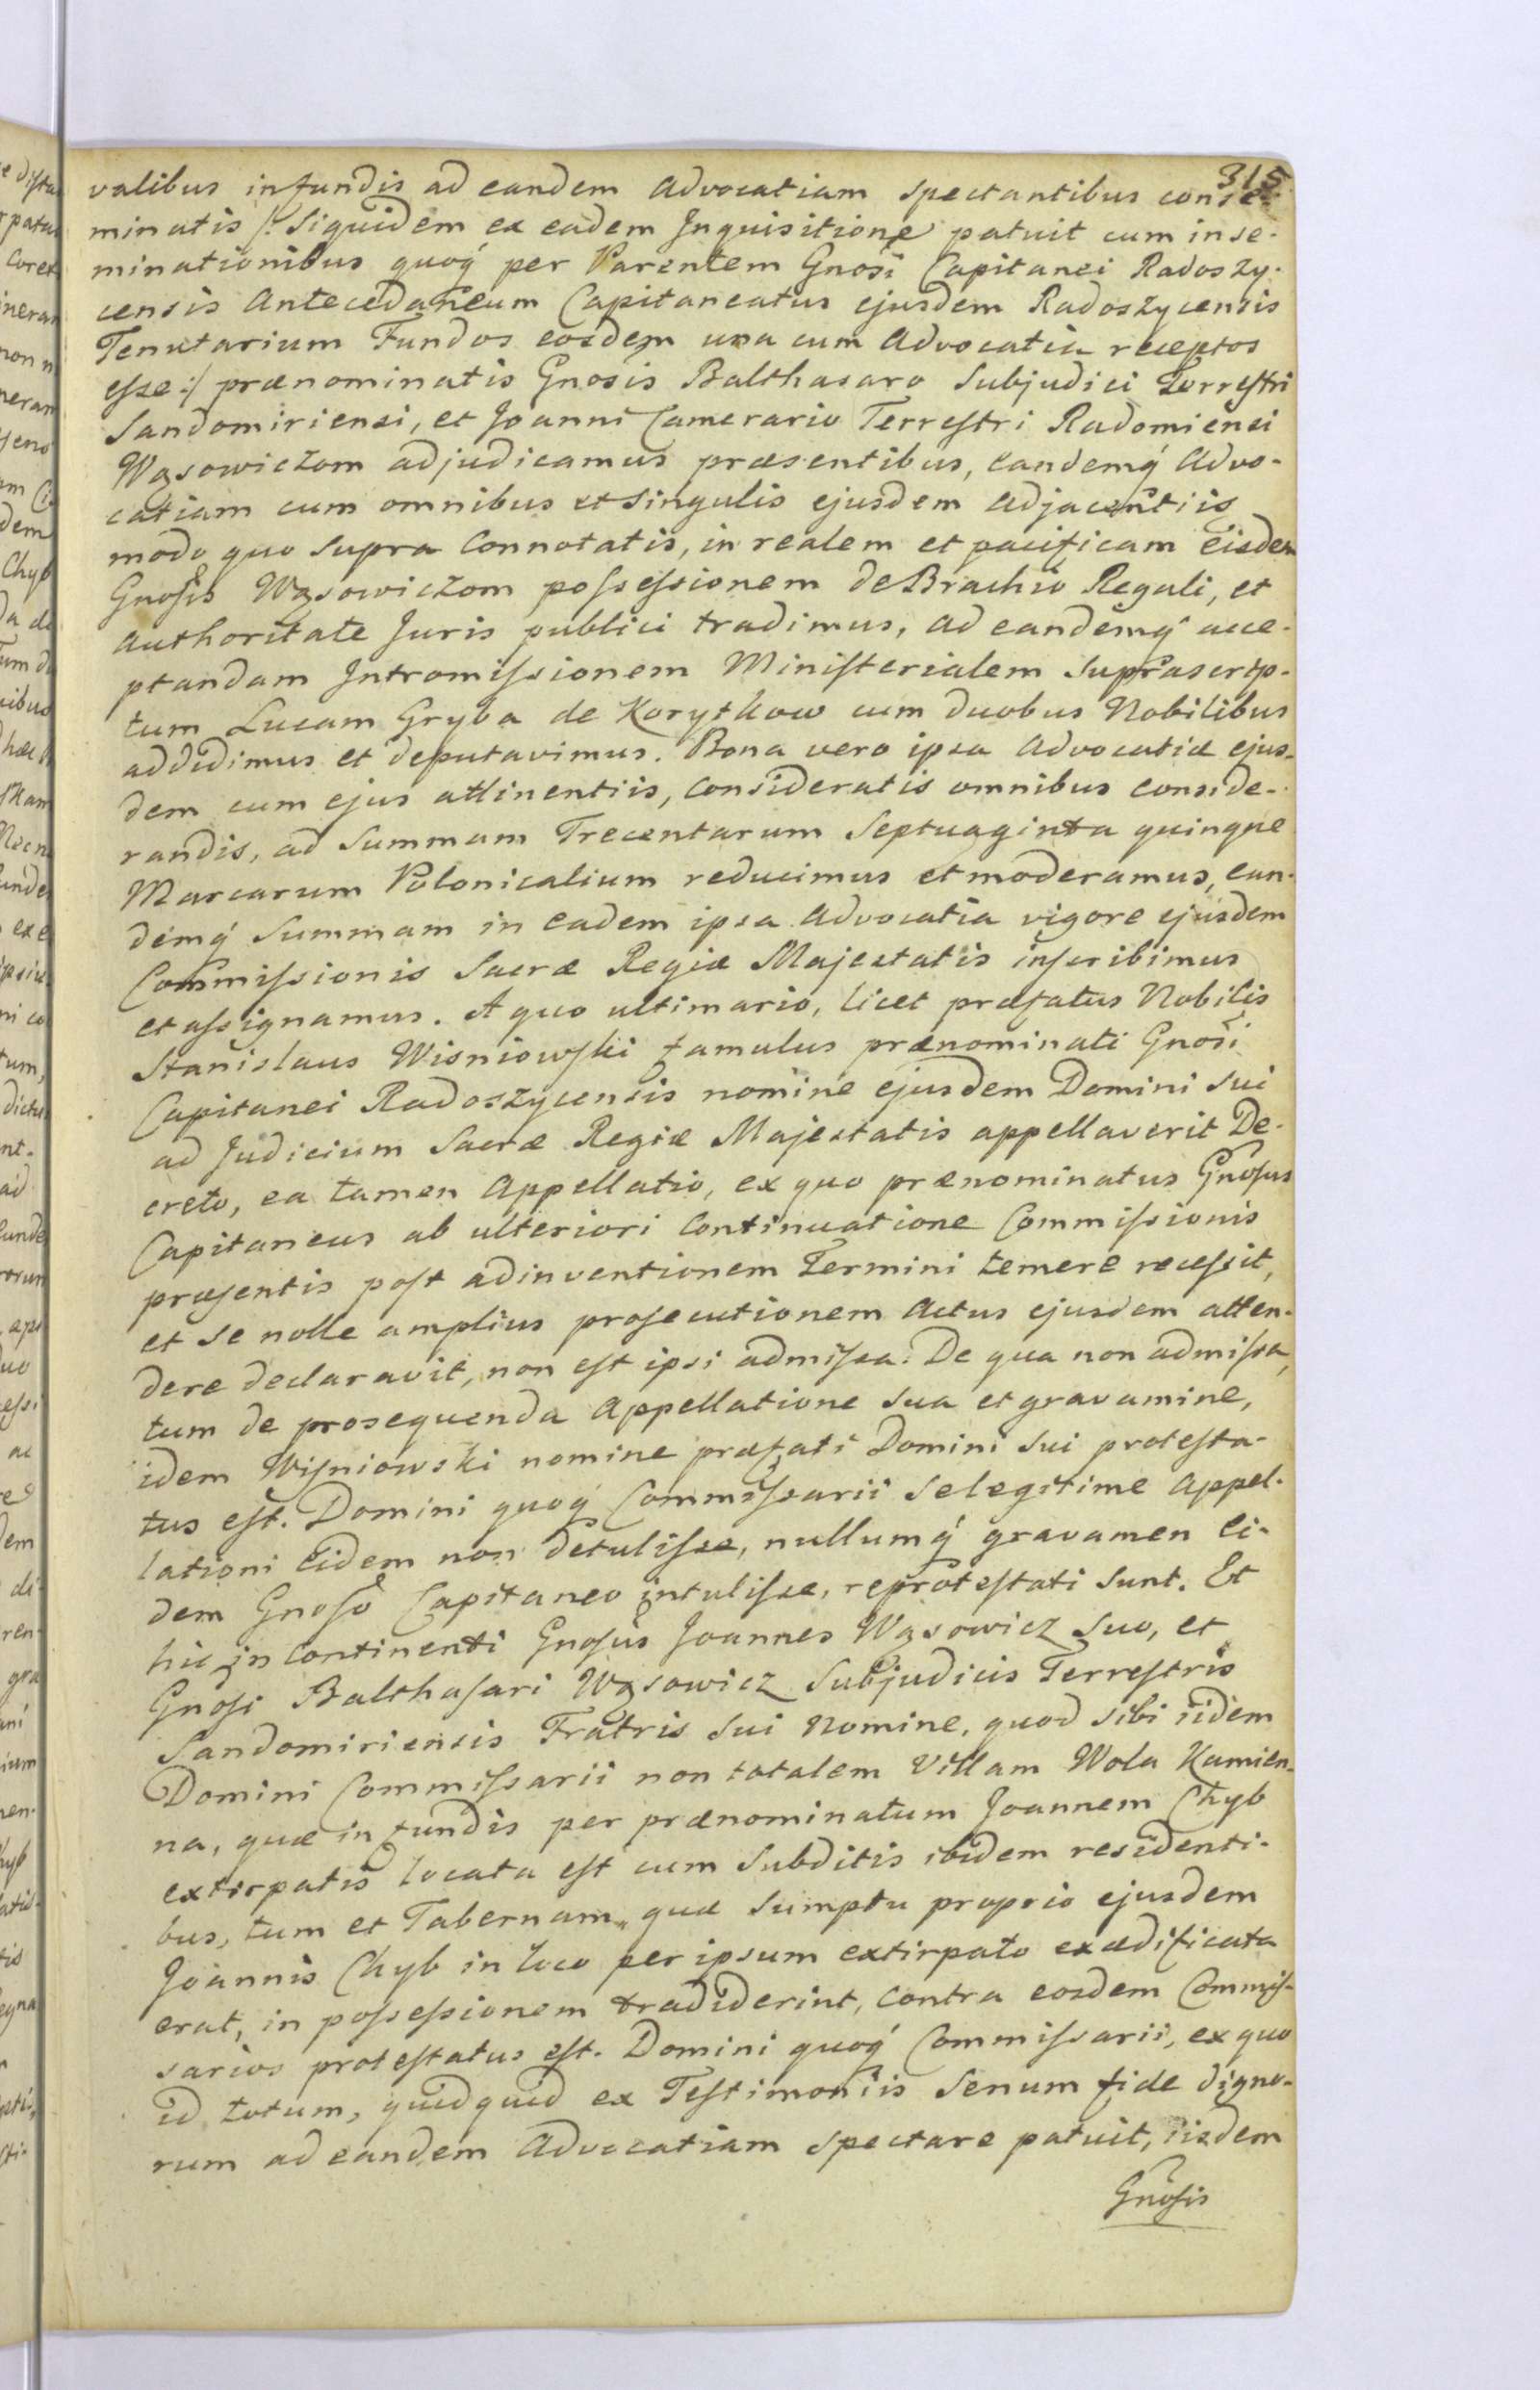 315
valibus in fundis ad eandem Advocatiam spectantibus conse-
minatis /: Siquidem ex eadem Inquisitione patuit cum inse-
minationibus quoq́ per Parentem Gnosi Capitanei Radoszy-
censis Antecedaneum Capitaneatus ejusdem Radoszycensis
Tenutarium Fundos eosdem una cum Advocatia receptos
esse :/ prænominatis Gnosis Balthasaro Subjudici Terrestri
Sandomiriensi, et Joanni Camerario Terrestri Radomiensi
Wąsowiczom adjudicamus præsentibus, eandemq́ Advo-
catiam cum omnibus et Singulis ejusdem Adjacentiis
modo quo supra Connotatis, in realem et pacificam eisdem
Gnosis Wąsowiczom possessionem de Brachio Regali, et
Authoritate Juris publici tradimus, ad eandemq́ acce-
ptandam Intromissionem Ministerialem Suprascrip-
tum Lucam Gryba de Korytkow cum duobus Nobilibus
addidimus et deputavimus. Bona vero ipsa Advocatiæ ejus-
dem cum ejus attinentiis, Consideratis omnibus conside-
randis, ad Summam Trecentarum Septuaginta quinque
Marcarum Polonicalium reducimus et moderamus, ean-
demq́ Summam in eadem ipsa Advocatia vigore ejusdem
Commissionis Sacræ Regiæ Majestatis inscribimus
et assignamus. A quo ultimario, licet præfatus Nobilis
Stanislaus Wisniowski famulus prænominati Gnosi
Capitanei Radoszycensis nomine ejusdem Domini Sui
ad Judicium Sacræ Regiæ Majestatis appellaverit De-
creto, ea tamen Appellatio, ex quo prænominatus Gnosus
Capitaneus ab ulteriori Continuatione Commissionis
præsentis post adinventionem Termini temere recessit,
et Se nolle amplius prosecutionem Actus ejusdem atten-
dere declaravit, non est ipsi admissa. De qua non admissa,
tum de prosequenda Appellatione Sua et gravamine,
idem Wisniowski nomine præfati Domini Sui protesta-
tus est. Domini quoq́ Commissarii Se legitime Appel-
lationi Eidem non detulisse, nullumq́ gravamen ei-
dem Gnoso Capitaneo intulisse, reprotestati Sunt. Et
hic in Continenti Gnosus Joannes Wąsowicz Suo, et
Gnosi Balthasari Wąsowicz Subjudicis Terrestris
Sandomiriensis Fratris Sui Nomine, quod Sibi iidem
Domini Commissarii non totalem Villam Wola Kamien-
na, quæ in fundis per prænominatum Joannem Chyb
extirpatis locata est cum Subditis ibidem residenti-
bus, tum et Tabernam, quæ Sumptu proprio ejusdem
Joannis Chyb in loco per ipsum extirpato exædificata
erat, in possessionem tradiderint, Contra eosdem Commis-
sarios protestatus est. Domini quoq́ Commissarii, ex quo
id totum, quidquid ex Testimoniis Senum fide digno-
rum ad eandem Advocatiam Spectare patuit, iisdem
Gnosis